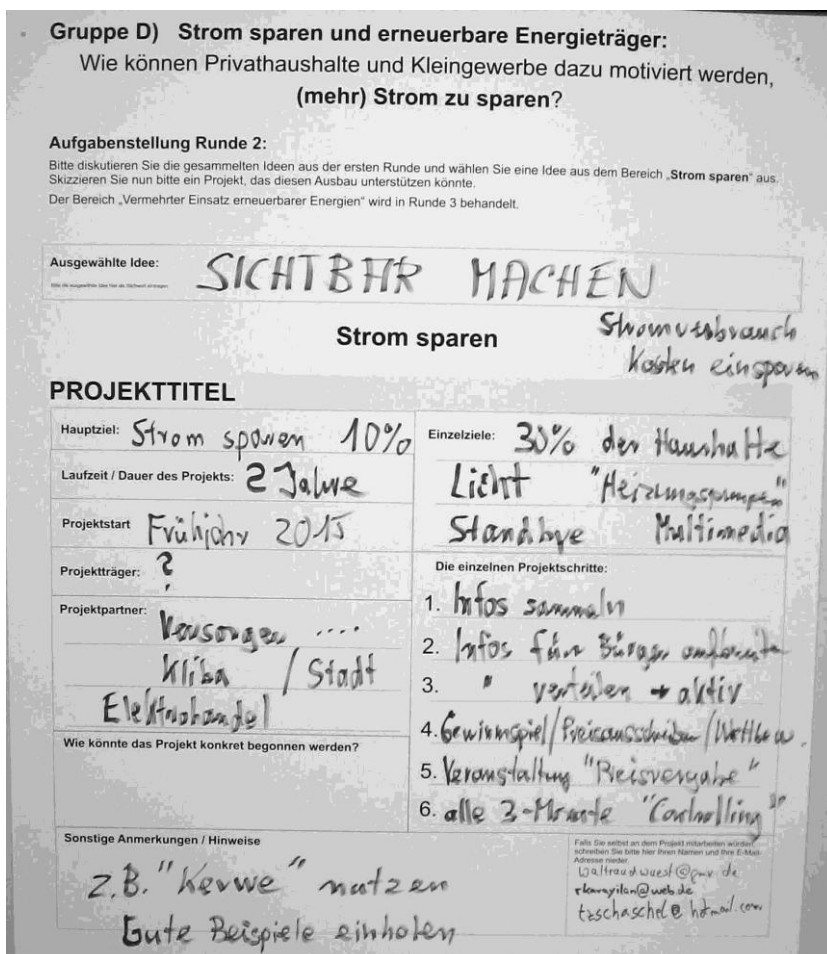 Gruppe D) Strom sparen und erneuerbare Energieträger:
Wie können Privathaushalte und Kleingewerbe dazu motiviert werden,
(mehr) Strom zu sparen?
Aufgabenstellung Runde 2:
Bitte diskutieren Sie die gesammelten Ideen aus der ersten Runde und wählen Sie eine Idee aus dem Bereich „Strom sparen" aus.
Skizzieren Sie nun bitte ein Projekt, das diesen Ausbau unterstützen könnte.
Der Bereich „Vermehrter Einsatz erneuerbarer Energien" wird in Runde 3 behandelt.
Ausgewählte Idee: SICHTBAR MACHEN
Strom sparen
Stromverbrauch
Kosten einsparen
PROJEKTTITEL
Hauptziel: Strom sparen 10%
Laufzeit / Dauer des Projekts: 2 Jahre
Projektstart Frühjahr 2015
Projektträger: ?
Projektpartner:
Versorger ....
Kliba / Stadt
Elektrohandel
Wie könnte das Projekt konkret begonnen werden?
Einzelziele: 30% der Haushalte
Licht "Heizungspumpen"
Standbye Multimedia
Die einzelnen Projektschritte:
1. Infos sammeln
2. Infos für Bürger
3. " verteilen → aktiv
4. Gewinnspiel/Preisausschreiben/Wettbew.
5. Veranstaltung "Preisvergabe"
6. alle 3-Monate "Controlling"
Sonstige Anmerkungen / Hinweise
z.B. "Kerwe" nutzen
Gute Beispiele einholen
Falls Sie selbst an dem Projekt mitarbeiten würden,
schreiben Sie bitte hier Ihren Namen und Ihre E-Mail-
Adresse nieder.
rkarayilan@web.de